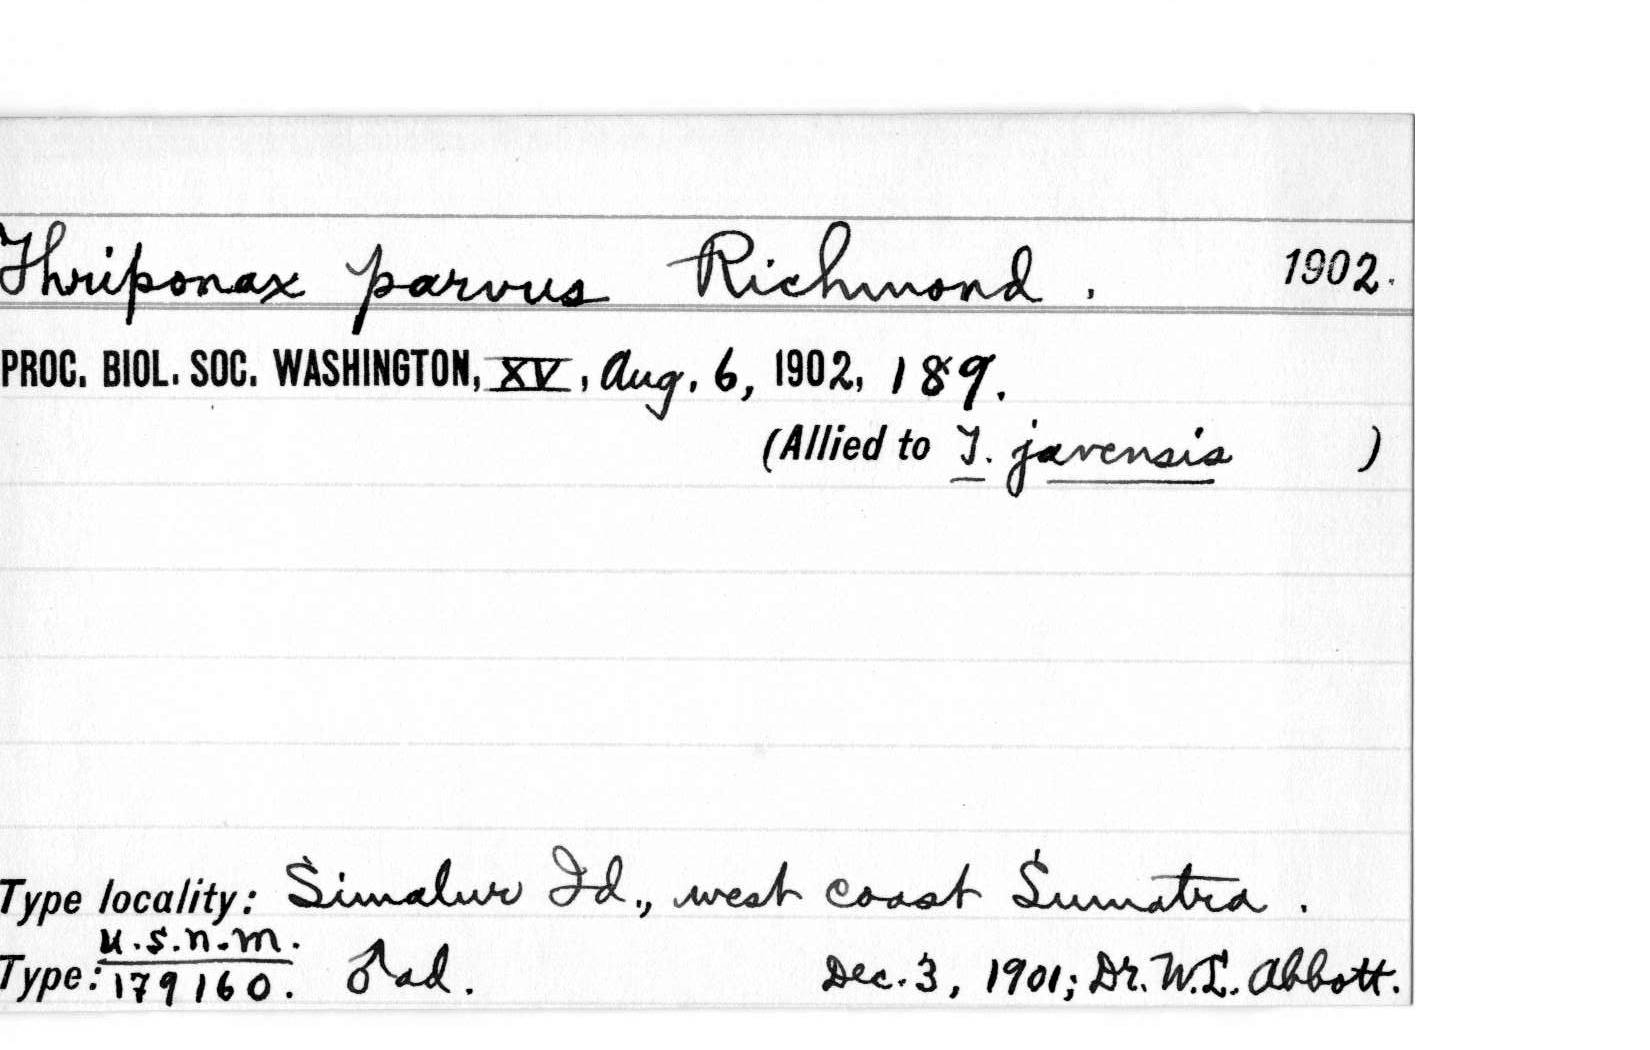 Thriponax parvus Richmond. 1902.
PROC. BIOL. SOC. WASHINGTON, XV, Aug. 6, 1902, 189.
(Allied to T. javensis )
Type locality: Simalur Id., west coast Sumatra.
U.S.N.M.
Type: 179160. ♂ ad. Dec. 3, 1901; Dr. W.L. Abbott.